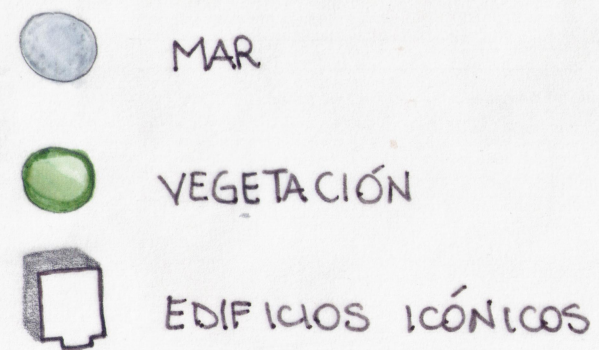 MAR
VEGETACIÓN
EDIFICIOS ICÓNICOS